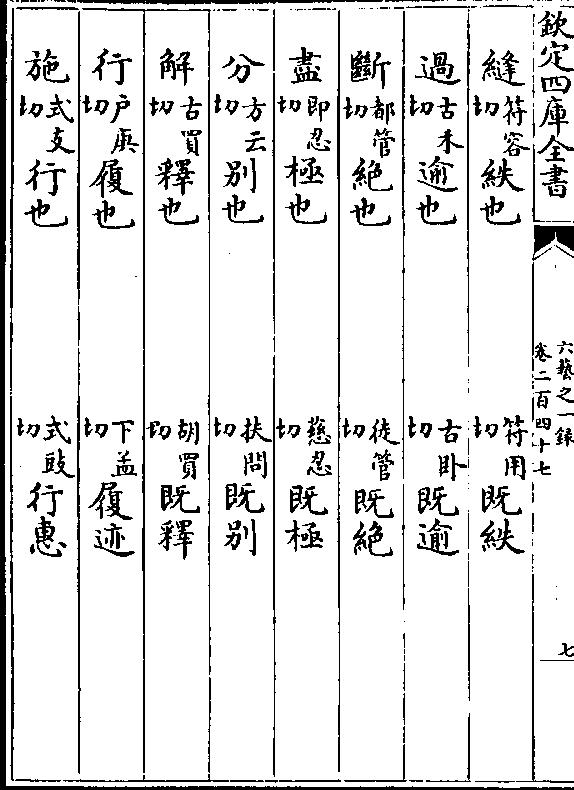 欽定四庫全書
六藝之一録
卷二百四十七
七
縫符容切紩也 符用切既紩
過古禾切逾也 古卧切既逾
斷都管切絶也 徒管切既絶
盡即忍切極也 慈忍切既極
分方云切别也 扶問切既别
解古買切釋也 胡買切既釋
行户庚切履也 下孟切履迹
施式支切行也 式豉切行惠